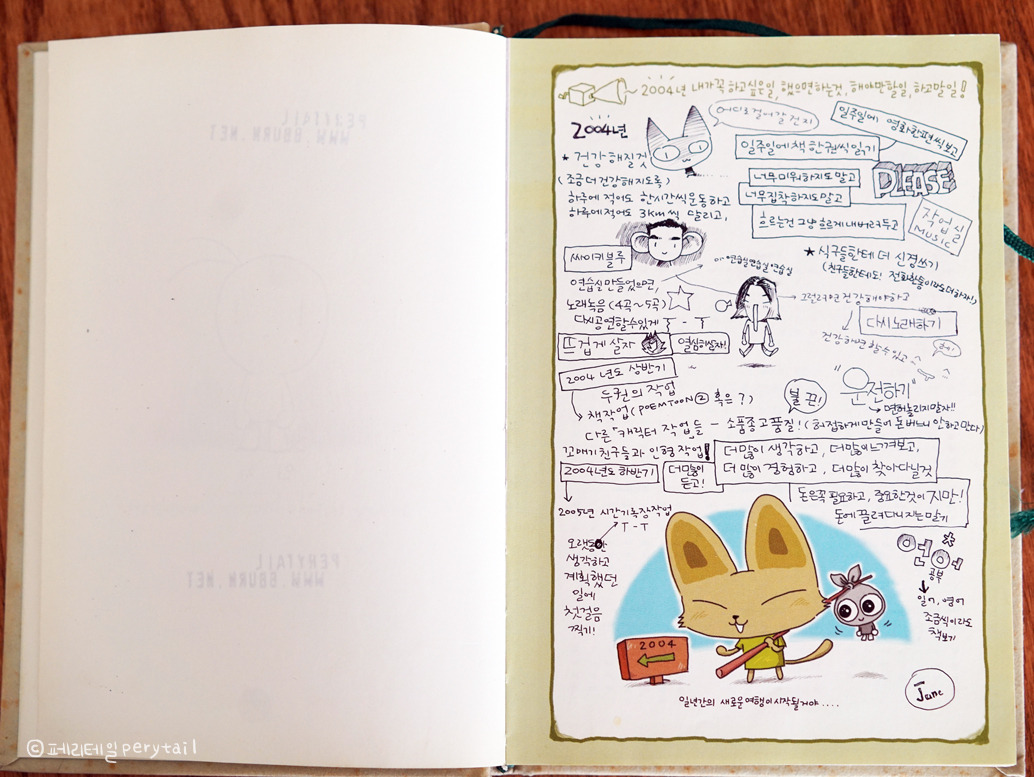 2004년 내가 꼭 하고싶은일, 했으면하는것, 해야만할일, 하고말일!
2004년
어디로 걸어갈 건지
일주일에 영화한편씩보고
★ 건강해질것
일주일에 책 한권씩 읽기
(조금 더 건강해지도록)
너무 미워하지도 말고
PLEASE
하루에 적어도 한시간씩 운동하고
너무 집착하지도 말고
하루에 적어도 3km씩 달리고,
흐르는건 그냥 흐르게 내버려두고
작업실
MUSIC
싸이키블루
★ 식구들한테 더 신경쓰기
(친구들한테도! 전화한통이라도 더하자!)
연습실만들었으면,
on 연습실연습실연습실
노래녹음 (4곡~5곡)
그럴려면 건강해야하고
다시공연할수있게 T-T
다시노래하기
뜨겁게 살자
열심히살자!
건강하면 할수있고
2004년도 상반기
두권의 작업
책작업 (POEMTOON② 혹은?)
불끈!
"운전하기"
면허놀리지말자!!
다른 "캐릭터 작업"들 - 소품종고품질! (허접하게만들어 돈버느니 안하고만다)
꼬매기친구들과 인형 작업!
더많이 생각하고, 더많이느껴보고,
더많이 경험하고, 더많이 찾아다닐것
2004년도 하반기
더많이
듣고!
돈은꼭 필요하고, 중요한것이지만!
돈에 끌려다니지는말기
2005년 시간기록장작업
T-T
오랫동안
생각하고
계획했던
일에
첫걸음
찍기!
연애
공부
일어, 영어
조금씩이라도
책보기
2004
일년간의 새로운여행이 시작될거야....
June
PERYTAIL
WWW.BBURN.NET
PERYTAIL
WWW.BBURN.NET
ⓒ페리테일perytail